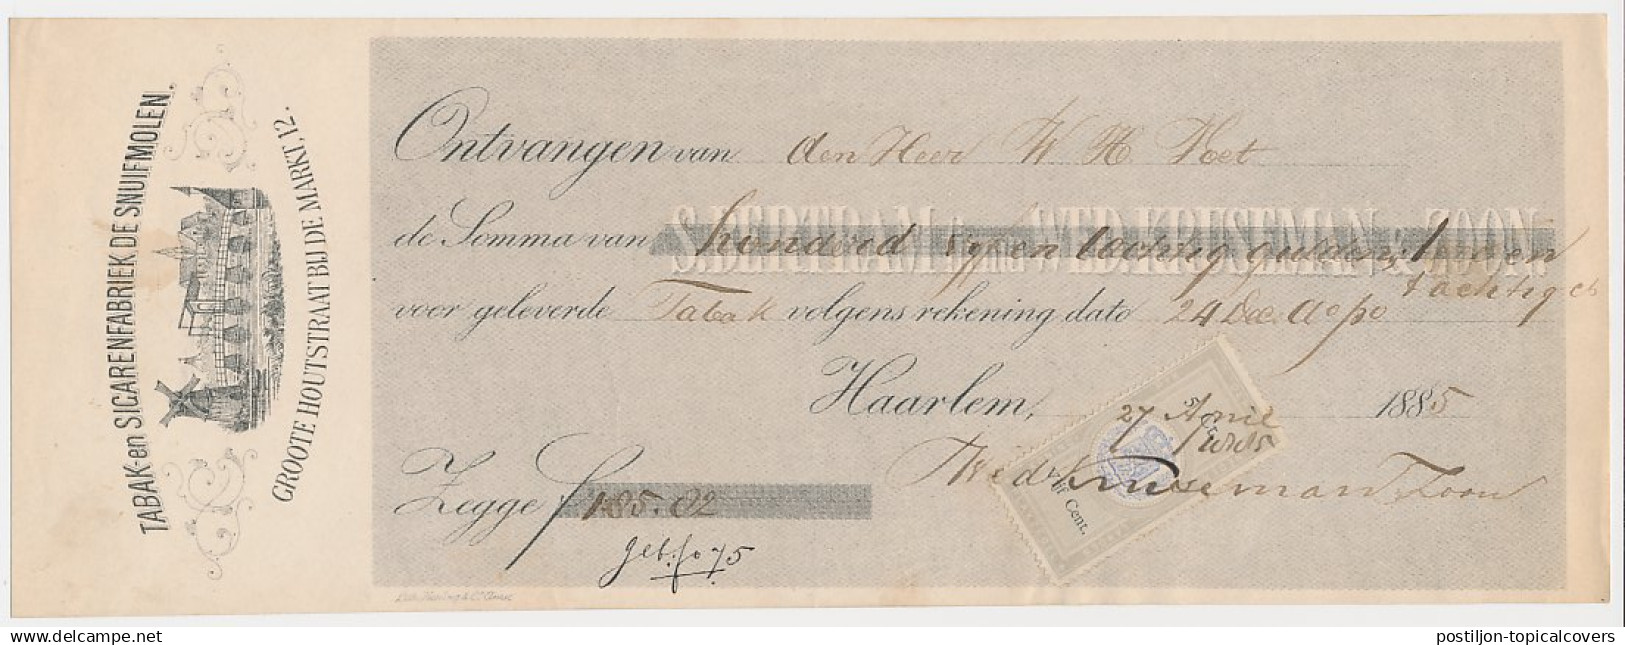 TABAK- en SIGARENFABRIEK DE SNUIFMOLEN.
GROOTE HOUTSTRAAT BIJ DE MARKT, 12.
Ontvangen van den Heer W H Voet
S. BERTRAM WED. KRUSEMAN & ZOON.
de Somma van honderd vyf en tachtig gulden
tachtig ct
voor geleverde Tabak volgens rekening dato 24 Dec. Ao po
Haarlem, 27 April 1885
5 Ct.
Vijf Cent.
Wed Kruseman Zoon
Zegge f 185.82
geb. fo 75
delcampe.net
postiljon-topicalcovers